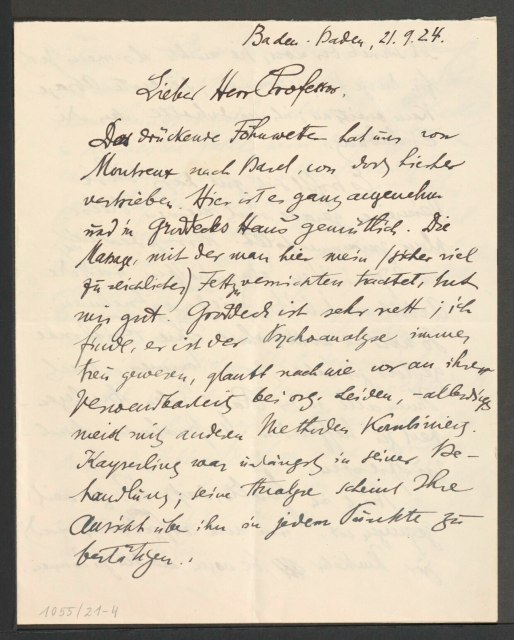 Baden-Baden, 21.9.24.
Lieber Herr Professor,
Das drückende Föhnwetter hat uns von
Montreux nach Basel, von dort hierher
vertrieben. Hier ist es ganz angenehm
und in Groddecks Haus gemütlich. Die
Massage, mit der man hier mein (bisher viel
zu reichliches) Fett zu vernichten trachtet, tut
mir gut. Groddeck ist sehr nett; ich
finde, er ist der Psychoanalyse immer
treu gewesen, glaubt nach wie vor an ihre
Verwendbarkeit bei org. Leiden, - allerdings
meist mit anderen Methoden kombiniert.
Kayserling war unlängst in seiner Be-
handlung; seine Analyse scheint Ihre
Ansicht über ihn in jedem Punkte zu
bestätigen.
1055/21-4